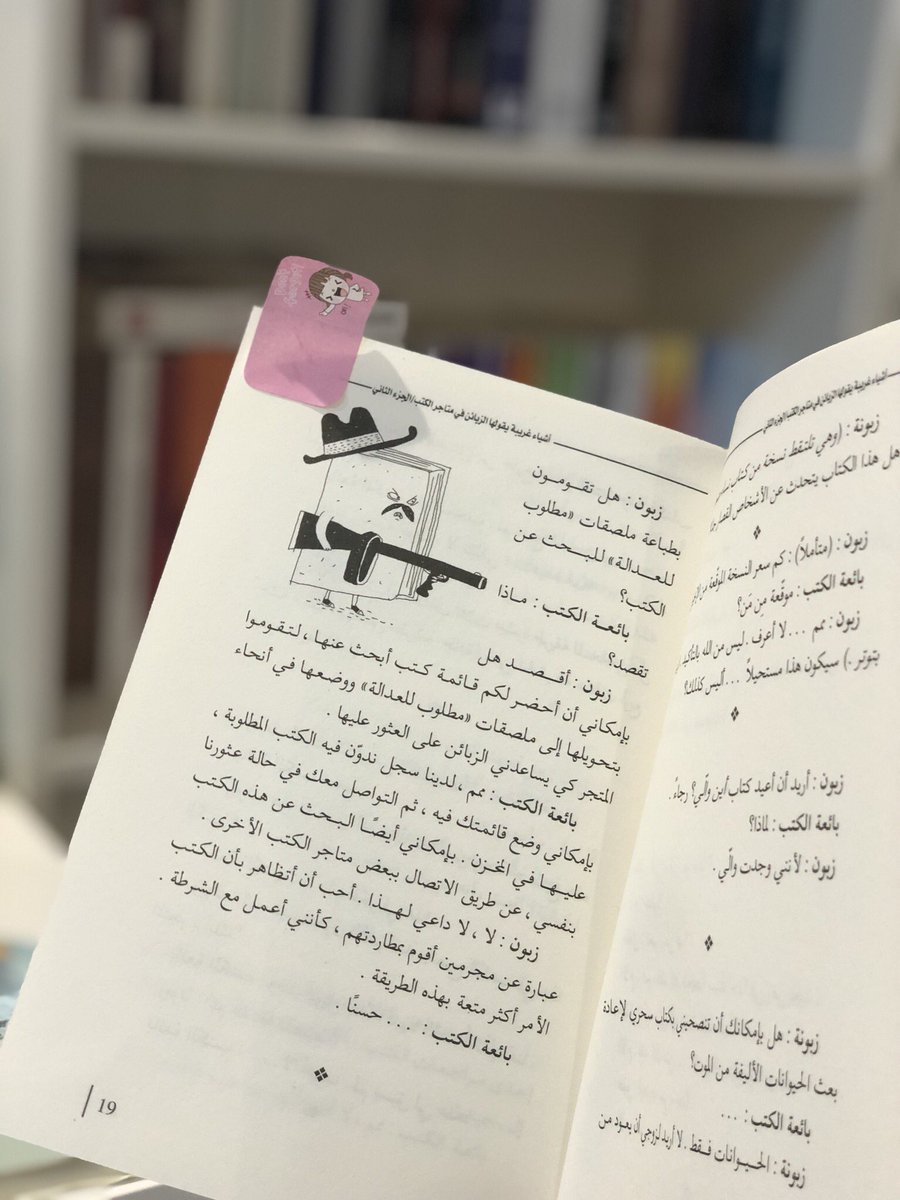 أشياء غريبة يقولها الزبائن في متاجر الكتب/الجزء الثاني
زبونة : (وهي تلتقط نسخة من كتاب
هل هذا الكتاب يتحدث عن الأشخاص
زبون : (متأملاً) : كم سعر النسخة الموقّعة من
بائعة الكتب : موقّعة مِن مَن؟
زبون : مم ... لا أعرف . ليس من الله بالتأكيد
بتوتر .) سيكون هذا مستحيلاً ... أليس كذلك؟
زبون : أريد أن أعيد كتاب/أين والّي؟ رجاءً .
بائعة الكتب : لماذا؟
زبون : لأنني وجدت والّي .
زبونة : هل بإمكانك أن تنصحيني بكتاب سحري لإعادة
بعث الحيوانات الأليفة من الموت؟
بائعة الكتب : ...
زبونة : الحيوانات فقط . لا أريد لزوجي أن يعود من
أشياء غريبة يقولها الزبائن في متاجر الكتب/الجزء الثاني
زبون : هل تقومون
بطباعة ملصقات «مطلوب
للعدالة» للبحث عن
الكتب؟
بائعة الكتب : ماذا
تقصد؟
زبون : أقصد هل
بإمكاني أن أحضر لكم قائمة كتب أبحث عنها ، لتقوموا
بتحويلها إلى ملصقات «مطلوب للعدالة» ووضعها في أنحاء
المتجر كي يساعدني الزبائن على العثور عليها .
بائعة الكتب : مم ، لدينا سجل ندوّن فيه الكتب المطلوبة ،
بإمكاني وضع قائمتك فيه ، ثم التواصل معك في حالة عثورنا
عليها في المخزن . بإمكاني أيضًا البحث عن هذه الكتب
بنفسي ، عن طريق الاتصال ببعض متاجر الكتب الأخرى .
زبون : لا ، لا داعي لهذا . أحب أن أتظاهر بأن الكتب
عبارة عن مجرمين أقوم بمطاردتهم ، كأنني أعمل مع الشرطة .
الأمر أكثر متعة بهذه الطريقة .
بائعة الكتب : ... حسنًا .
19